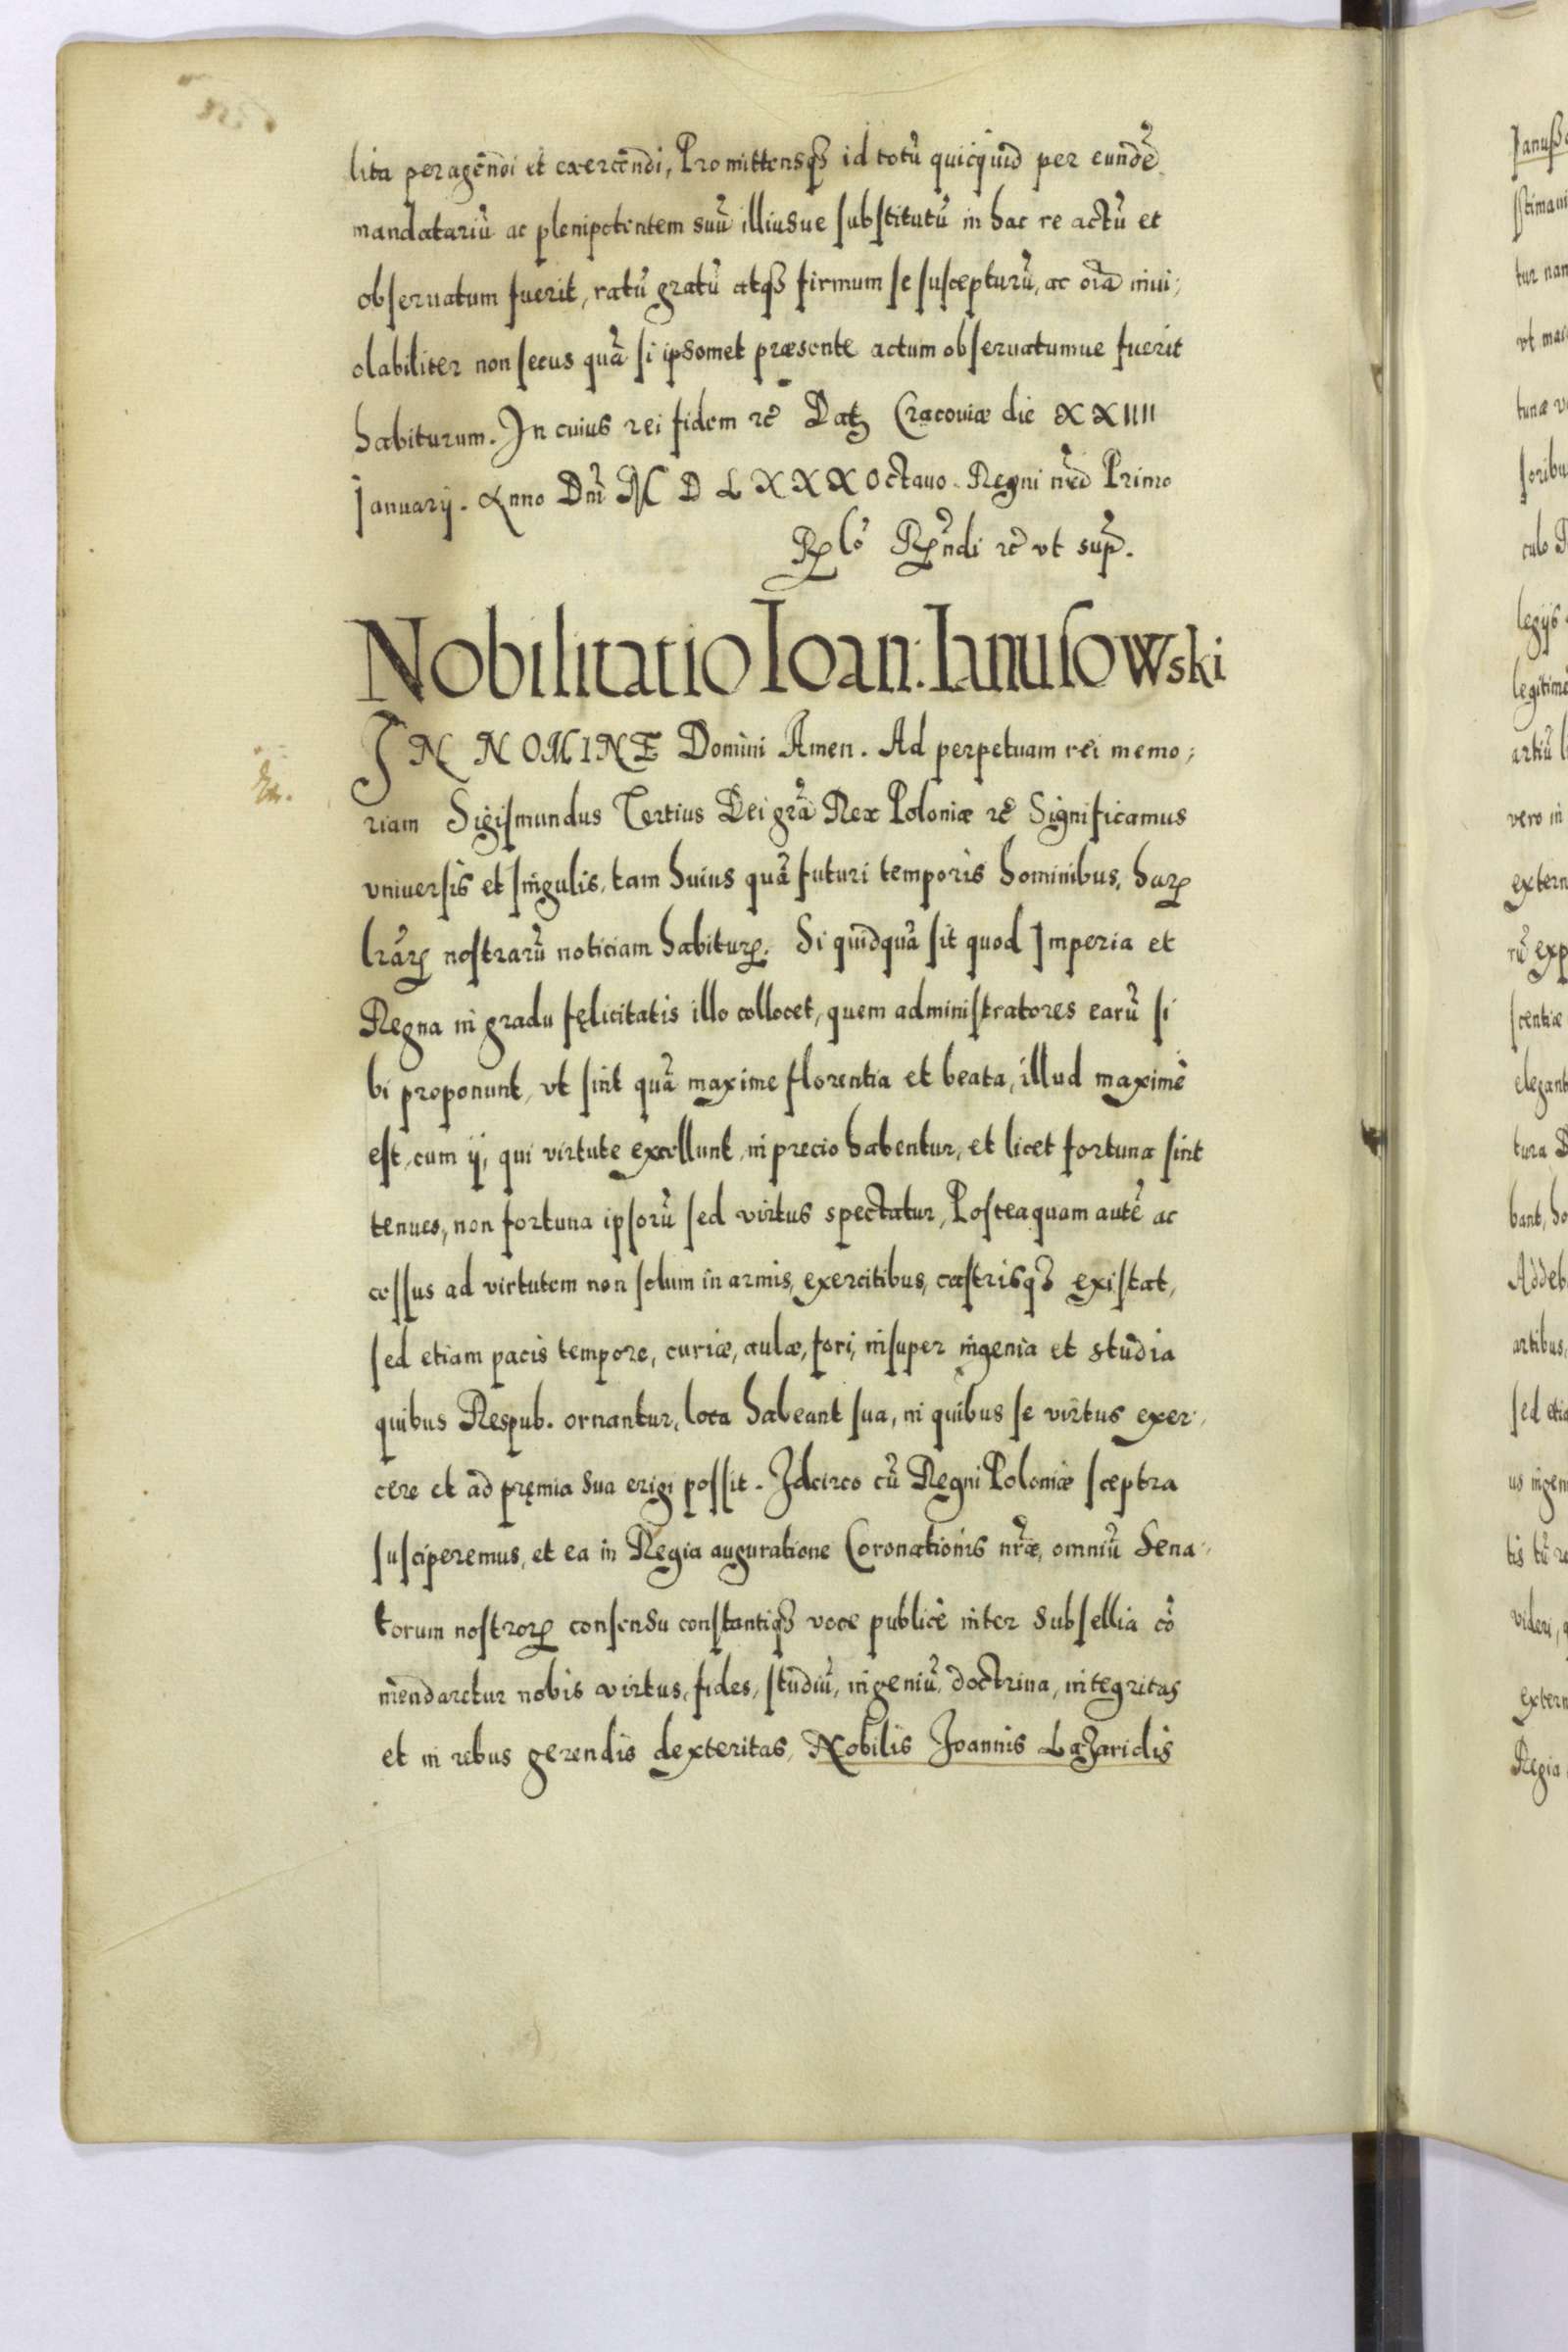 lita peragēndi et exercēndi, Promittensq₃ id totū quicquid per eundē
mandatariū ac plenipotentem suū illiusue substitutū in hac re actū et
obseruatum fuerit, ratū gratū atq₃ firmum se suscepturū, ac oīa inui;
olabiliter non secus quā si ipsomet præsente actum obseruatumue fuerit
habiturum. In cuius rei fidem ꝛc̄ Datꝫ Cracouiæ die XXIIII
Ianuarij. Anno Dnī M D L XXX Octauo. Regni nr̄o Primo
ut sup̄.
Nobilitatio Ioan: Ianusowski
IN NOMINE Domini Amen. Ad perpetuam rei memo;
riam Sigismundus Tertius Dei grā Rex Poloniæ ꝛc̄ Significamus
vniuersis et singulis, tam huius quā futuri temporis hominibus, haꝝ
lrāꝝ nostrarū noticiam habituꝝ. Si quidquā sit quod Imperia et
Regna in gradu fęlicitatis illo collocet, quem administratores earū si
bi proponunt, vt sint quā maxime florentia et beata, illud maximè
est, cum ij, qui virtute excellunt, in precio habentur, et licet fortunæ sint
tenues, non fortuna ipsorū sed virtus spectatur, Posteaquam autē ac
cessus ad virtutem non solum in armis, exercitibus, castrisq₃ existat,
sed etiam pacis tempore, curiæ, aulæ, fori, insuper ingenia et studia
quibus Respub. ornantur, loca habeant sua, in quibus se virtus exer-
cere et ad pręmia sua erigi possit. Idcirco cū Regni Poloniæ sceptra
susciperemus, et ea in Regia auguratione Coronationis nr̄æ, omniū Sena-
torum nostroꝝ consensu constantiq₃ voce publicè inter subsellia cō
mendaretur nobis virtus, fides, studiū, ingeniū, doctrina, integritas
et in rebus gerendis dexteritas, Nobilis Joannis Lazaridis